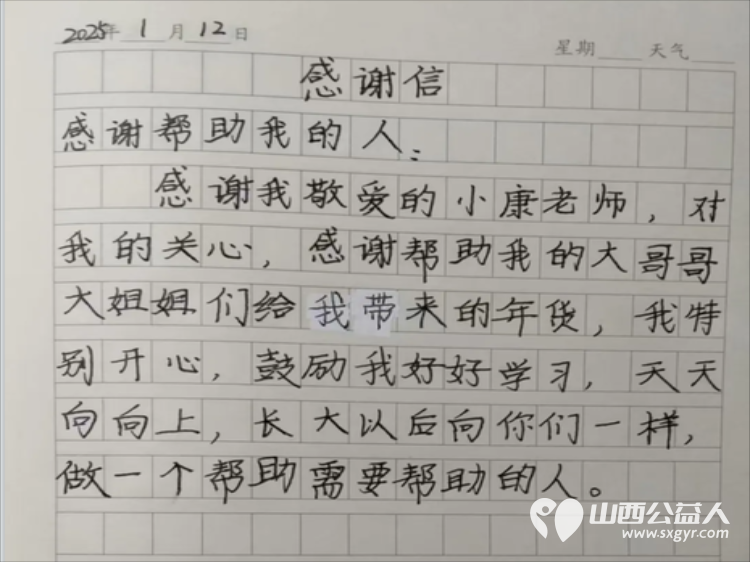 2025年1月12日 星期 天气
感谢信
感谢帮助我的人:
感谢我敬爱的小康老师,对
我的关心,感谢帮助我的大哥哥
大姐姐们给我带来的年货,我特
别开心,鼓励我好好学习,天天
向向上,长大以后向你们一样,
做一个帮助需要帮助的人。
山西公益人
www.sxgyr.com